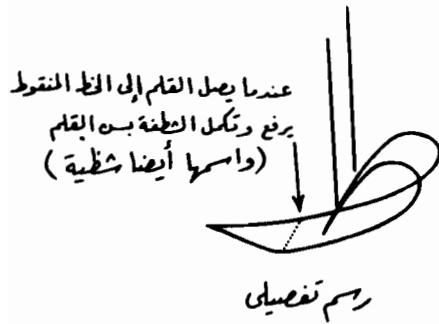 عندما يصل القلم إلى الخط المنقوط
يرفع وتكمل الشظفة بسن القلم
(واسمها أيضا شظية)
رسم تفصيلى